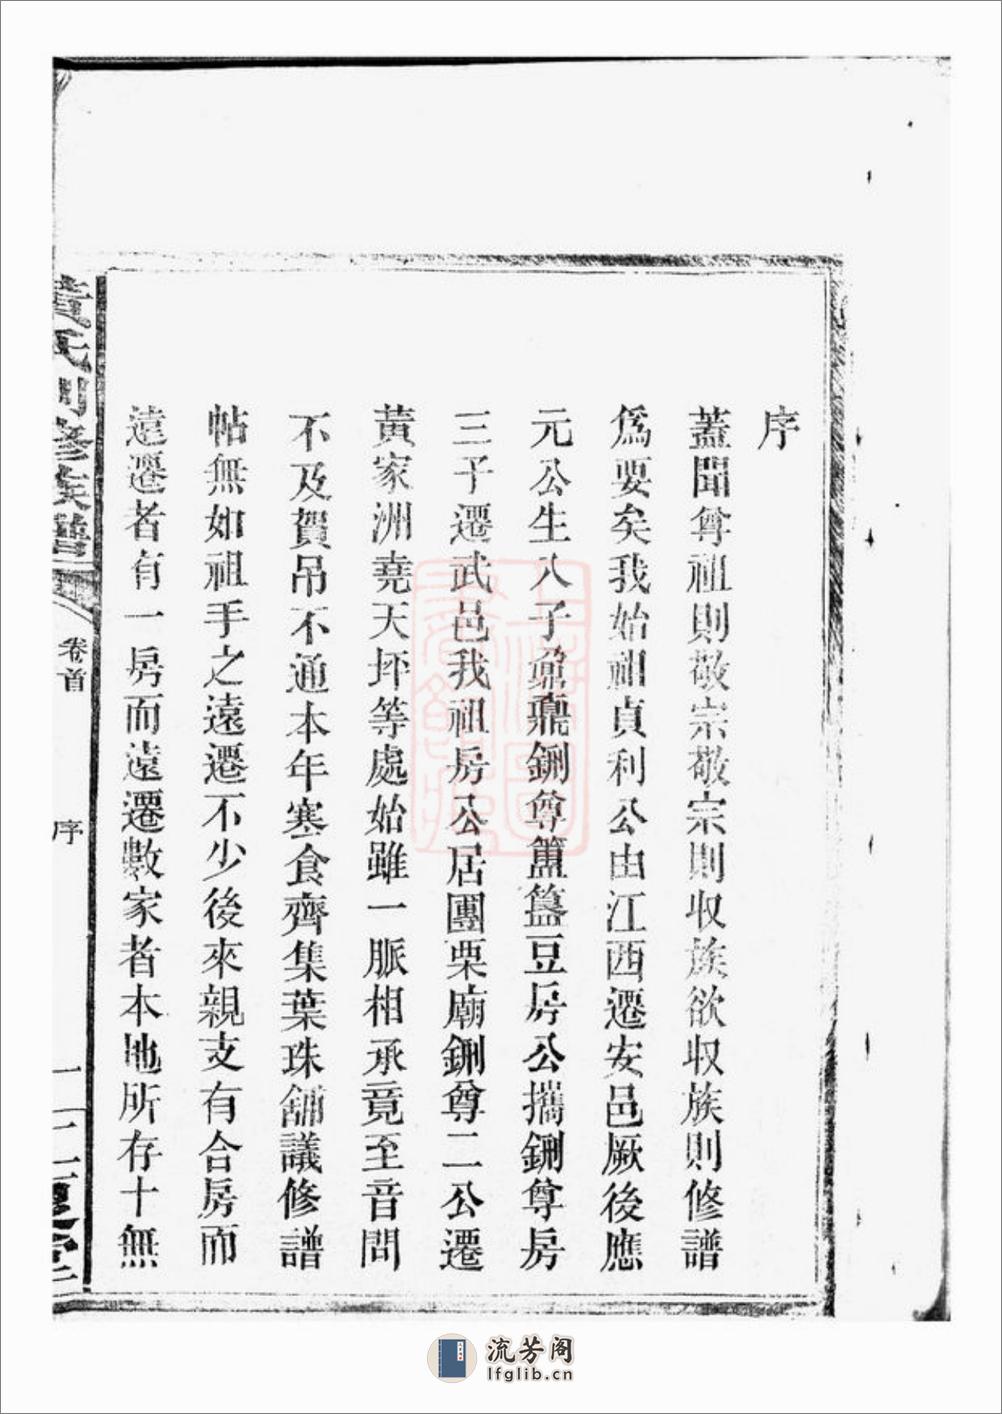 序
蓋聞尊祖則敬宗敬宗則収族欲収族則修譜
爲要矣我始祖貞利公由江西遷安邑厥後應
元公生八子鼐鼎鉶尊簠簋豆房公攜鉶尊房
三子遷武邑我祖房公居團栗廟鉶尊二公遷
黃家洲堯天坪等處始雖一脈相承竟至音問
不及賀吊不通本年寒食齊集葉珠舖議修譜
帖無如祖手之遠遷不少後來親支有合房而
遠遷者有一房而遠遷數家者本地所存十無
黃氏閂修族譜
卷首
序
一
流芳阁
lfglib.cn